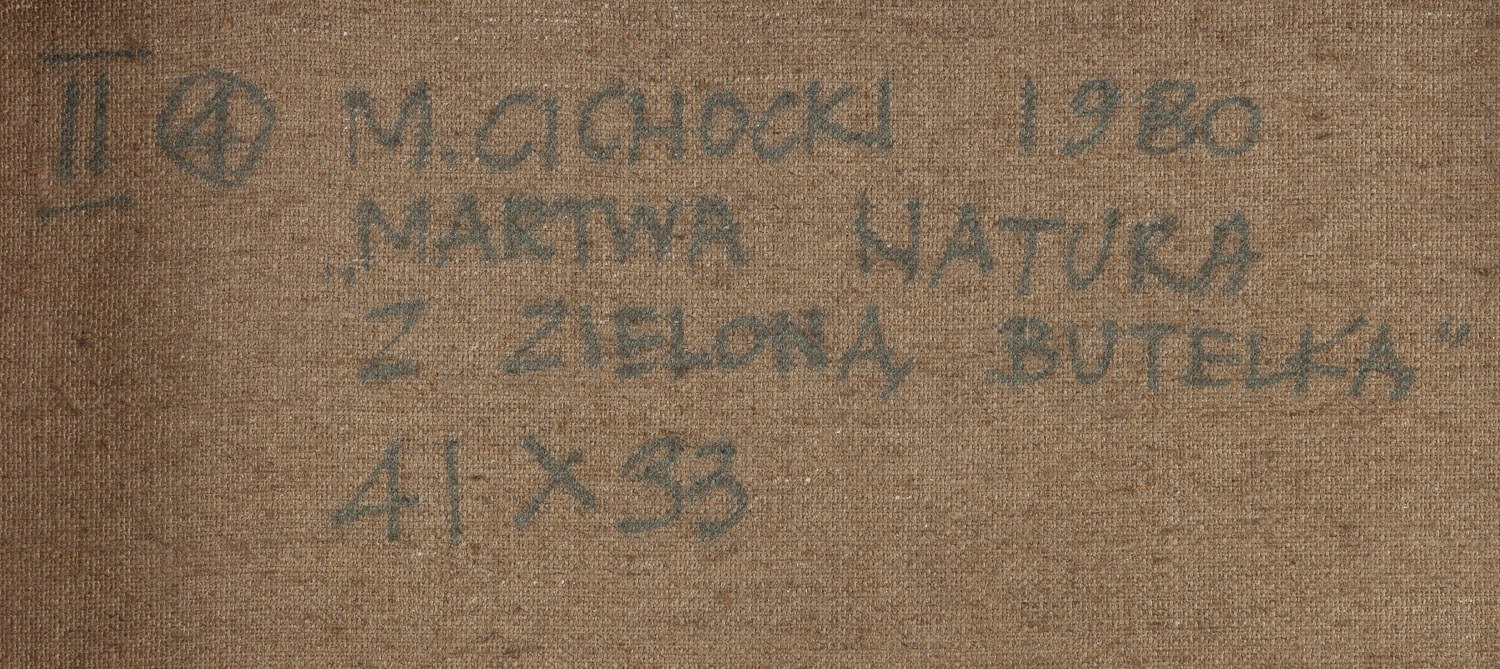 II ④ M. CICHOCKI 1980
„MARTWA NATURA
Z ZIELONĄ BUTELKĄ”
41 X 33